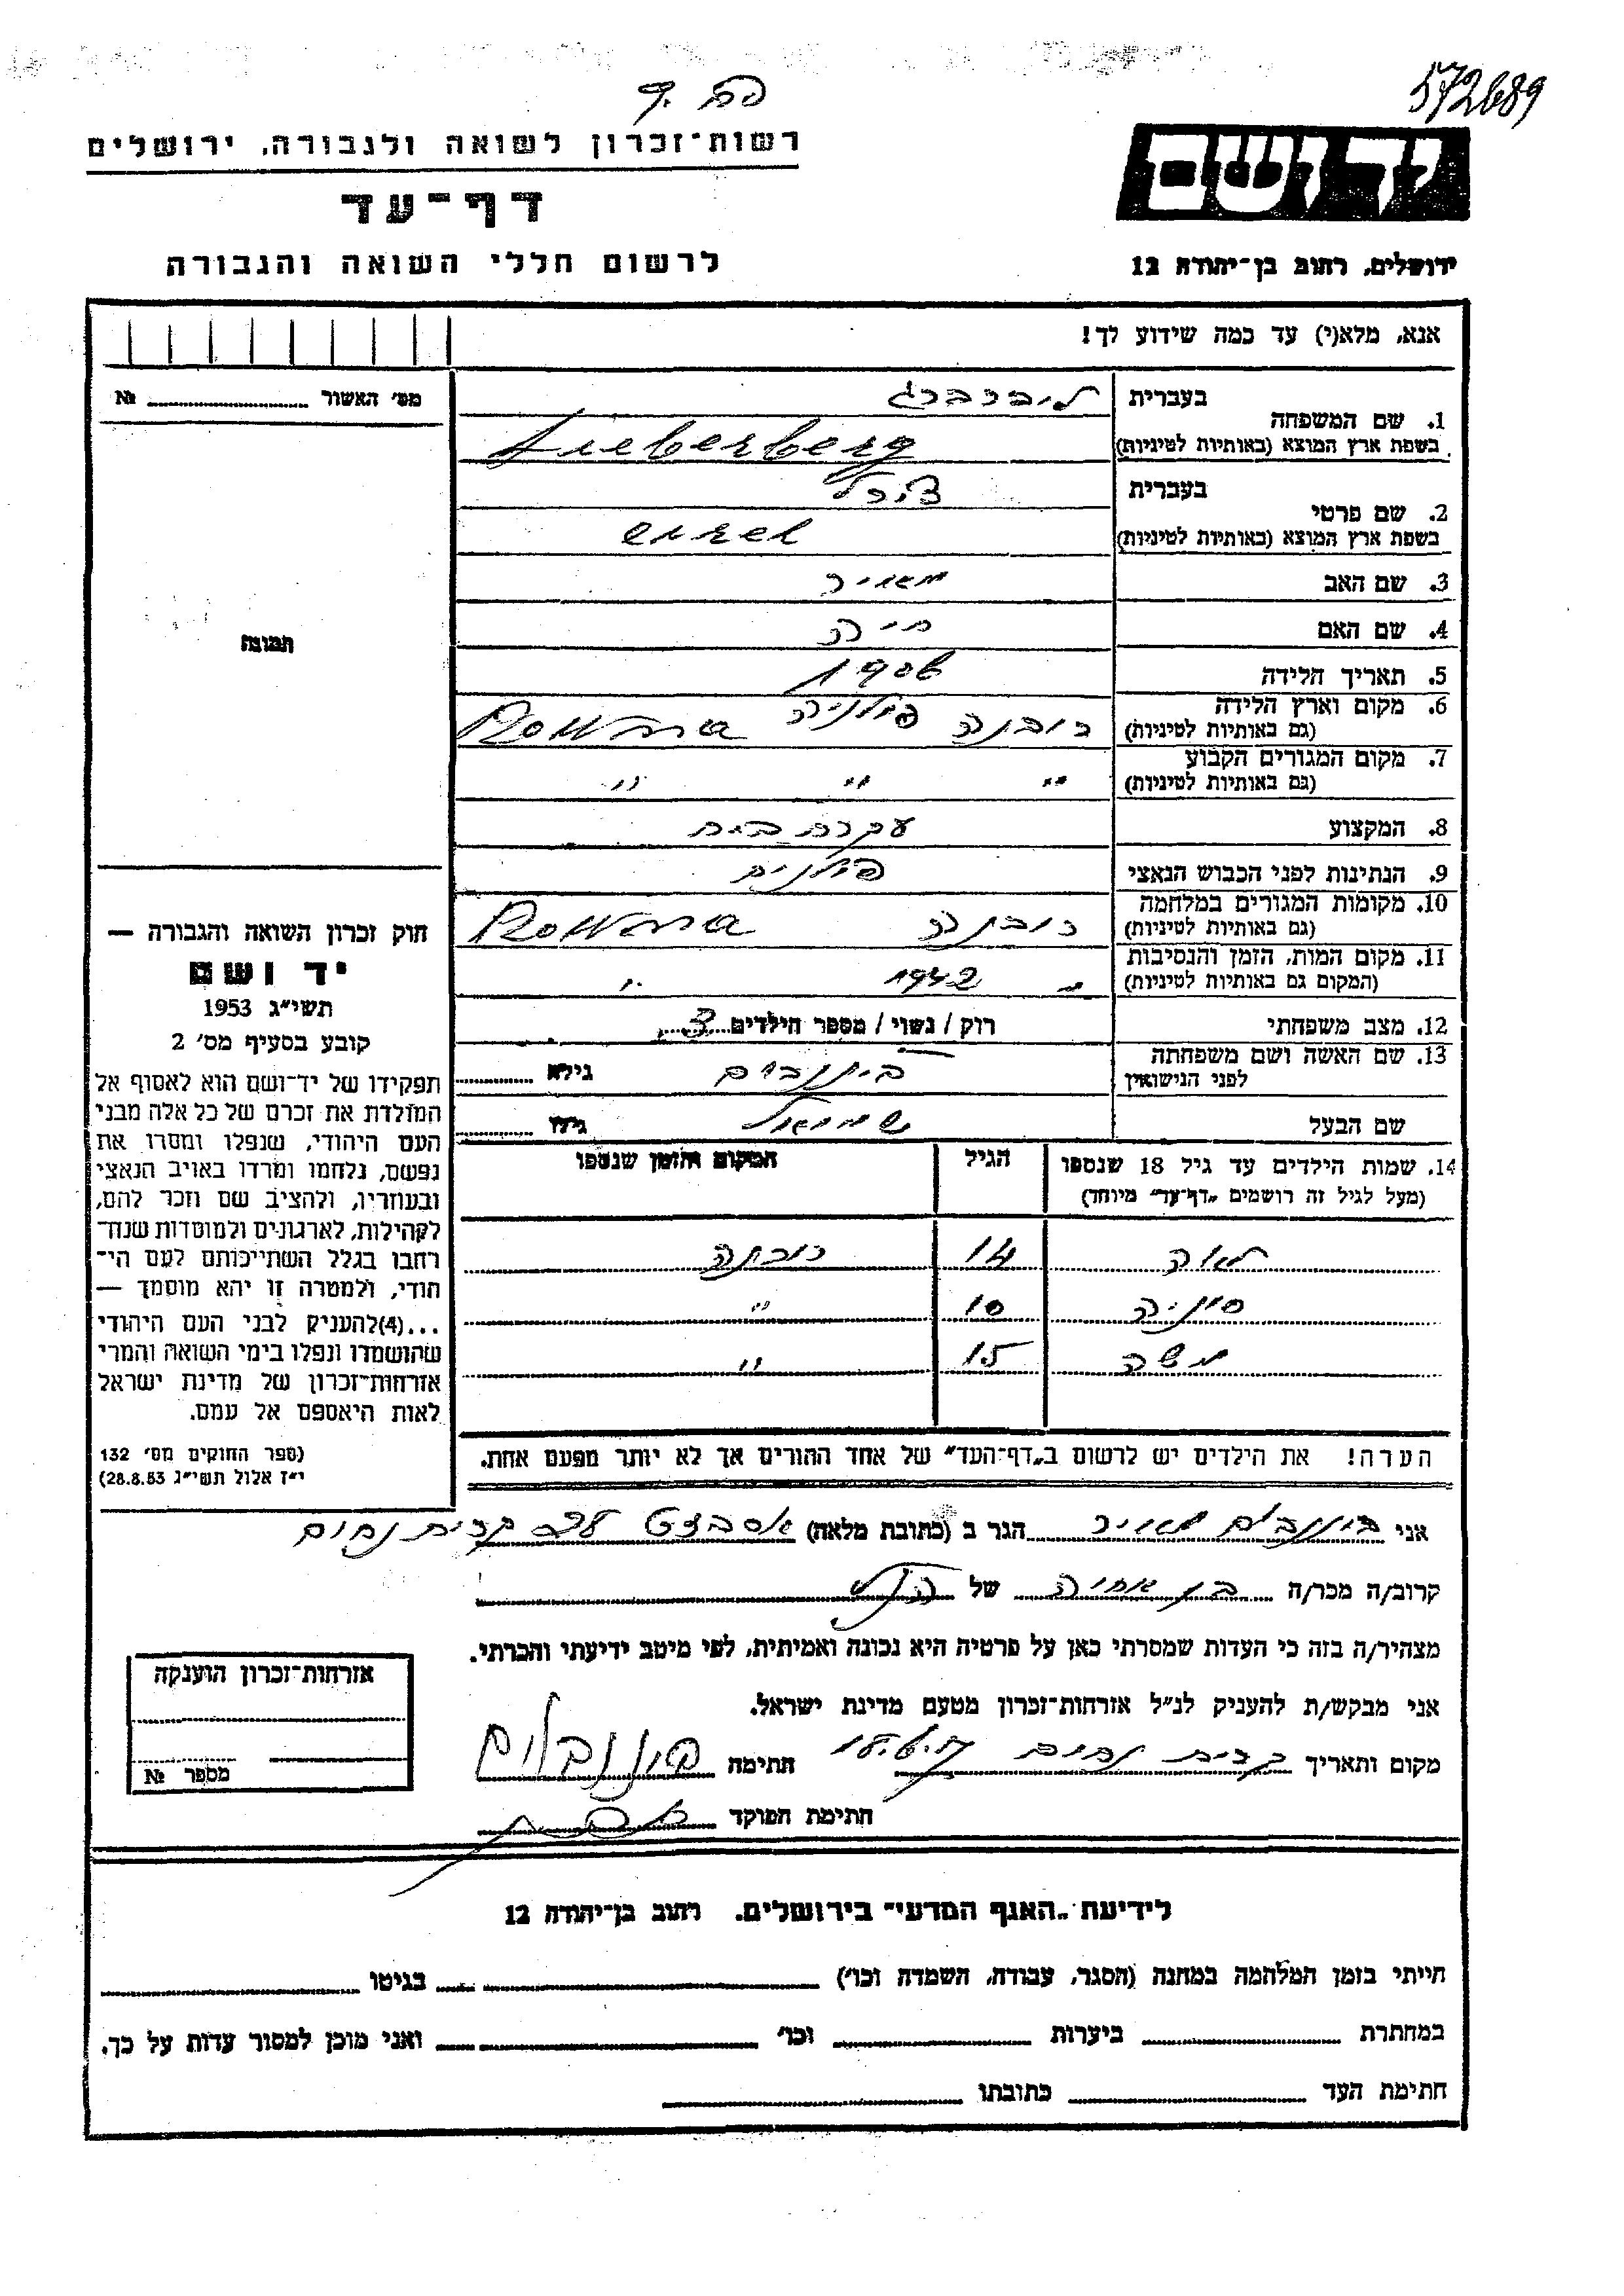 572689
רשות־זכרון לשואה ולגבורה, ירושלים
דף־עד
לרשום חללי השואה והגבורה
יד ושם
ירושלים, רחוב בן־יהודה 12
אנא, מלא(י) עד כמה שידוע לך!
מס׳ האשור № 
תמונה
1. שם המשפחה בעברית ליברברג
בשפת ארץ המוצא (באותיות לטיניות) Lieberberg
2. שם פרטי בעברית
בשפת ארץ המוצא (באותיות לטיניות)
3. שם האב מאיר
4. שם האם חיה
5. תאריך הלידה 1906
6. מקום וארץ הלידה (גם באותיות לטיניות) רובנה פולניה Rowna
7. מקום המגורים הקבוע (גם באותיות לטיניות) " " "
8. המקצוע עקרת בית
9. הנתינות לפני הכבוש הנאצי פולנית
10. מקומות המגורים במלחמה (גם באותיות לטיניות) רובנה Rowna
11. מקום המות, הזמן והנסיבות (המקום גם באותיות לטיניות) " 1942 "
12. מצב משפחתי רוק / נשוי / מספר הילדים 3
13. שם האשה ושם משפחתה לפני הנישואין בירנבוים גילה
שם הבעל שמואל גילו
14. שמות הילדים עד גיל 18 שנספו הגיל המקום והזמן שנספו
(מעל לגיל זה רושמים „דף־עד" מיוחד)
לאה 14 רובנה
סוניה 10 "
משה 15 "
הערה! את הילדים יש לרשום ב„דף־העד" של אחד ההורים אך לא יותר מפעם אחת.
חוק זכרון השואה והגבורה —
יד ושם
תשי״ג 1953
קובע בסעיף מס׳ 2
תפקידו של יד־ושם הוא לאסוף אל
המולדת את זכרם של כל אלה מבני
העם היהודי, שנפלו ומסרו את
נפשם, נלחמו ומרדו באויב הנאצי
ובעוזריו, ולהציב שם וזכר להם,
לקהילות, לארגונים ולמוסדות שנח־
רבו בגלל השתייכותם לעם הי־
הודי, ולמטרה זו יהא מוסמך —
...(4) להעניק לבני העם היהודי
שהושמדו ונפלו בימי השואה והמרי
אזרחות־זכרון של מדינת ישראל
לאות היאספם אל עמם.
(ספר החוקים מס׳ 132
י״ז אלול תשי״ג 28.8.53)
אני בירנבוים מאיר הגר ב (כתובת מלאה) קרית נחום
קרוב/ה מכר/ה בן אחיה של הנ״ל
מצהיר/ה בזה כי העדות שמסרתי כאן על פרטיה היא נכונה ואמיתית, לפי מיטב ידיעתי והכרתי.
אני מבקש/ת להעניק לנ״ל אזרחות־זכרון מטעם מדינת ישראל.
מקום ותאריך קרית נחום חתימה בירנבוים
חתימת הפוקד
אזרחות־זכרון הוענקה
מספר №
לידיעת „האגף המדעי" בירושלים. רחוב בן־יהודה 12
הייתי בזמן המלחמה במחנה (הסגר, עבודה, השמדה וכו׳) בגיטו
במחתרת ביערות וכו׳ ואני מוכן למסור עדות על כך.
חתימת העד כתובתו